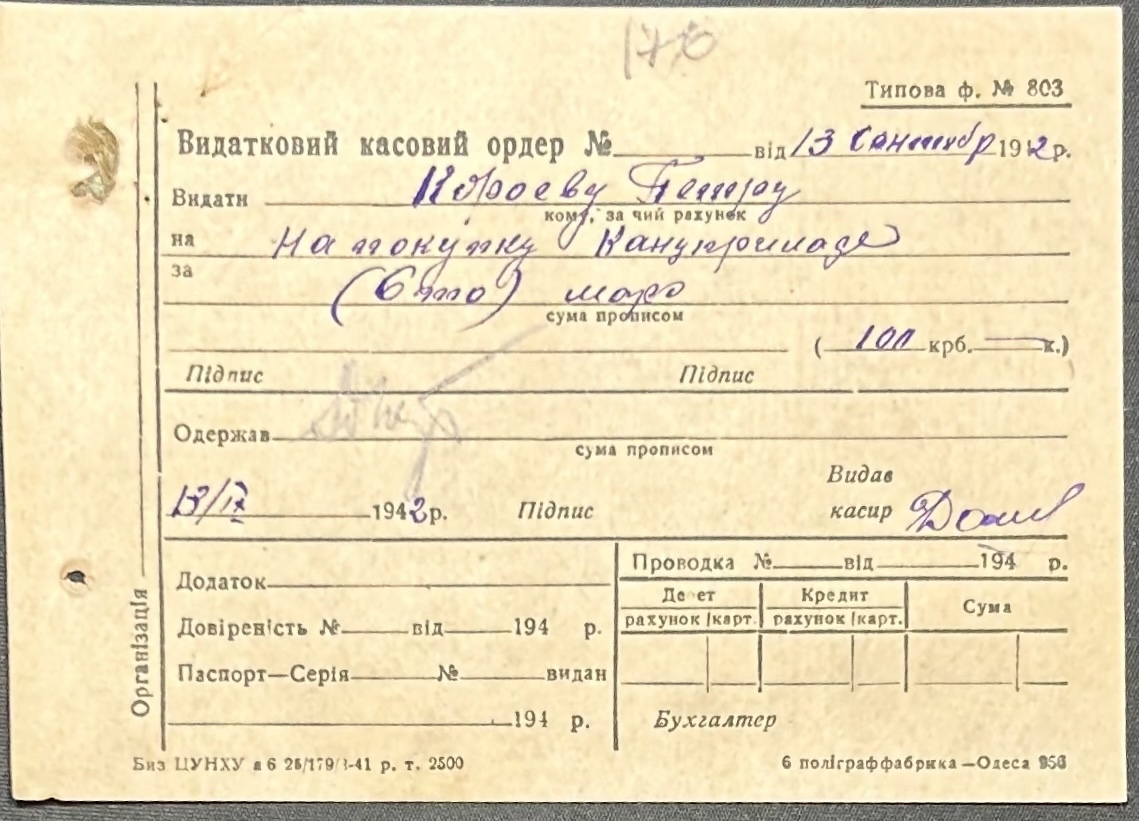 176
Типова ф. № 803
Видатковий касовий ордер № від 13 Сентябр 1942 р.
Видати Петру
кому, за чий рахунок
на На покупку
за
(Сто) мар
сума прописом
( 100 крб. — к.)
Підпис Підпис
Одержав
сума прописом
Видав
13/IX 1942 р. Підпис касир
Організація
Додаток
Довіреність № від 194 р.
Паспорт—Серія № видан
194 р.
Проводка № від 194 р.
Дебет Кредит Сума
рахунок карт. рахунок карт.
Бухгалтер
Биз ЦУНХУ 41 р. т. 2500
6 поліграффабрика—Одеса 956